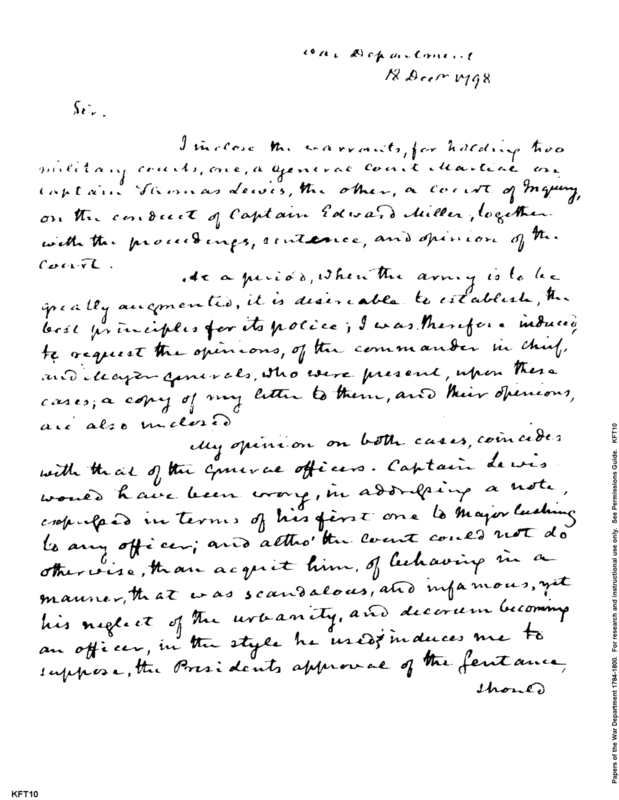 War Department
18 Decr 1798
Sir.
I inclose the warrants, for holding two
military courts, one, a General Court Martial on
Captain Thomas Lewis, the other, a court of Inquiry,
on the conduct of Captain Edward Miller, together
with the proceedings, sentence, and opinion of the
Court.
At a period, when the army is to be
greatly augmented, it is desireable to establish, the
best principles for its police; I was therefore induced,
to request the opinions, of the commander in chief,
and Major Generals, who were present, upon these
cases; a copy of my letter to them, and their opinions,
are also inclosed
My opinion on both cases, coincides
with that of the general officers. Captain Lewis
would have been wrong, in addressing a note,
expressed in terms of his first one to Major Cushing
to any officer; and altho' the court could not do
otherwise, than acquit him, of behaving in a
manner, that was scandalous, and infamous, yet
his neglect of the urbanity, and decorum becoming
an officer, in the style he used, induces me to
suppose, the Presidents approval of the Sentance,
should
KFT10
Papers of the War Department 1784-1800. For research and instructional use only. See Permissions Guide. KFT10